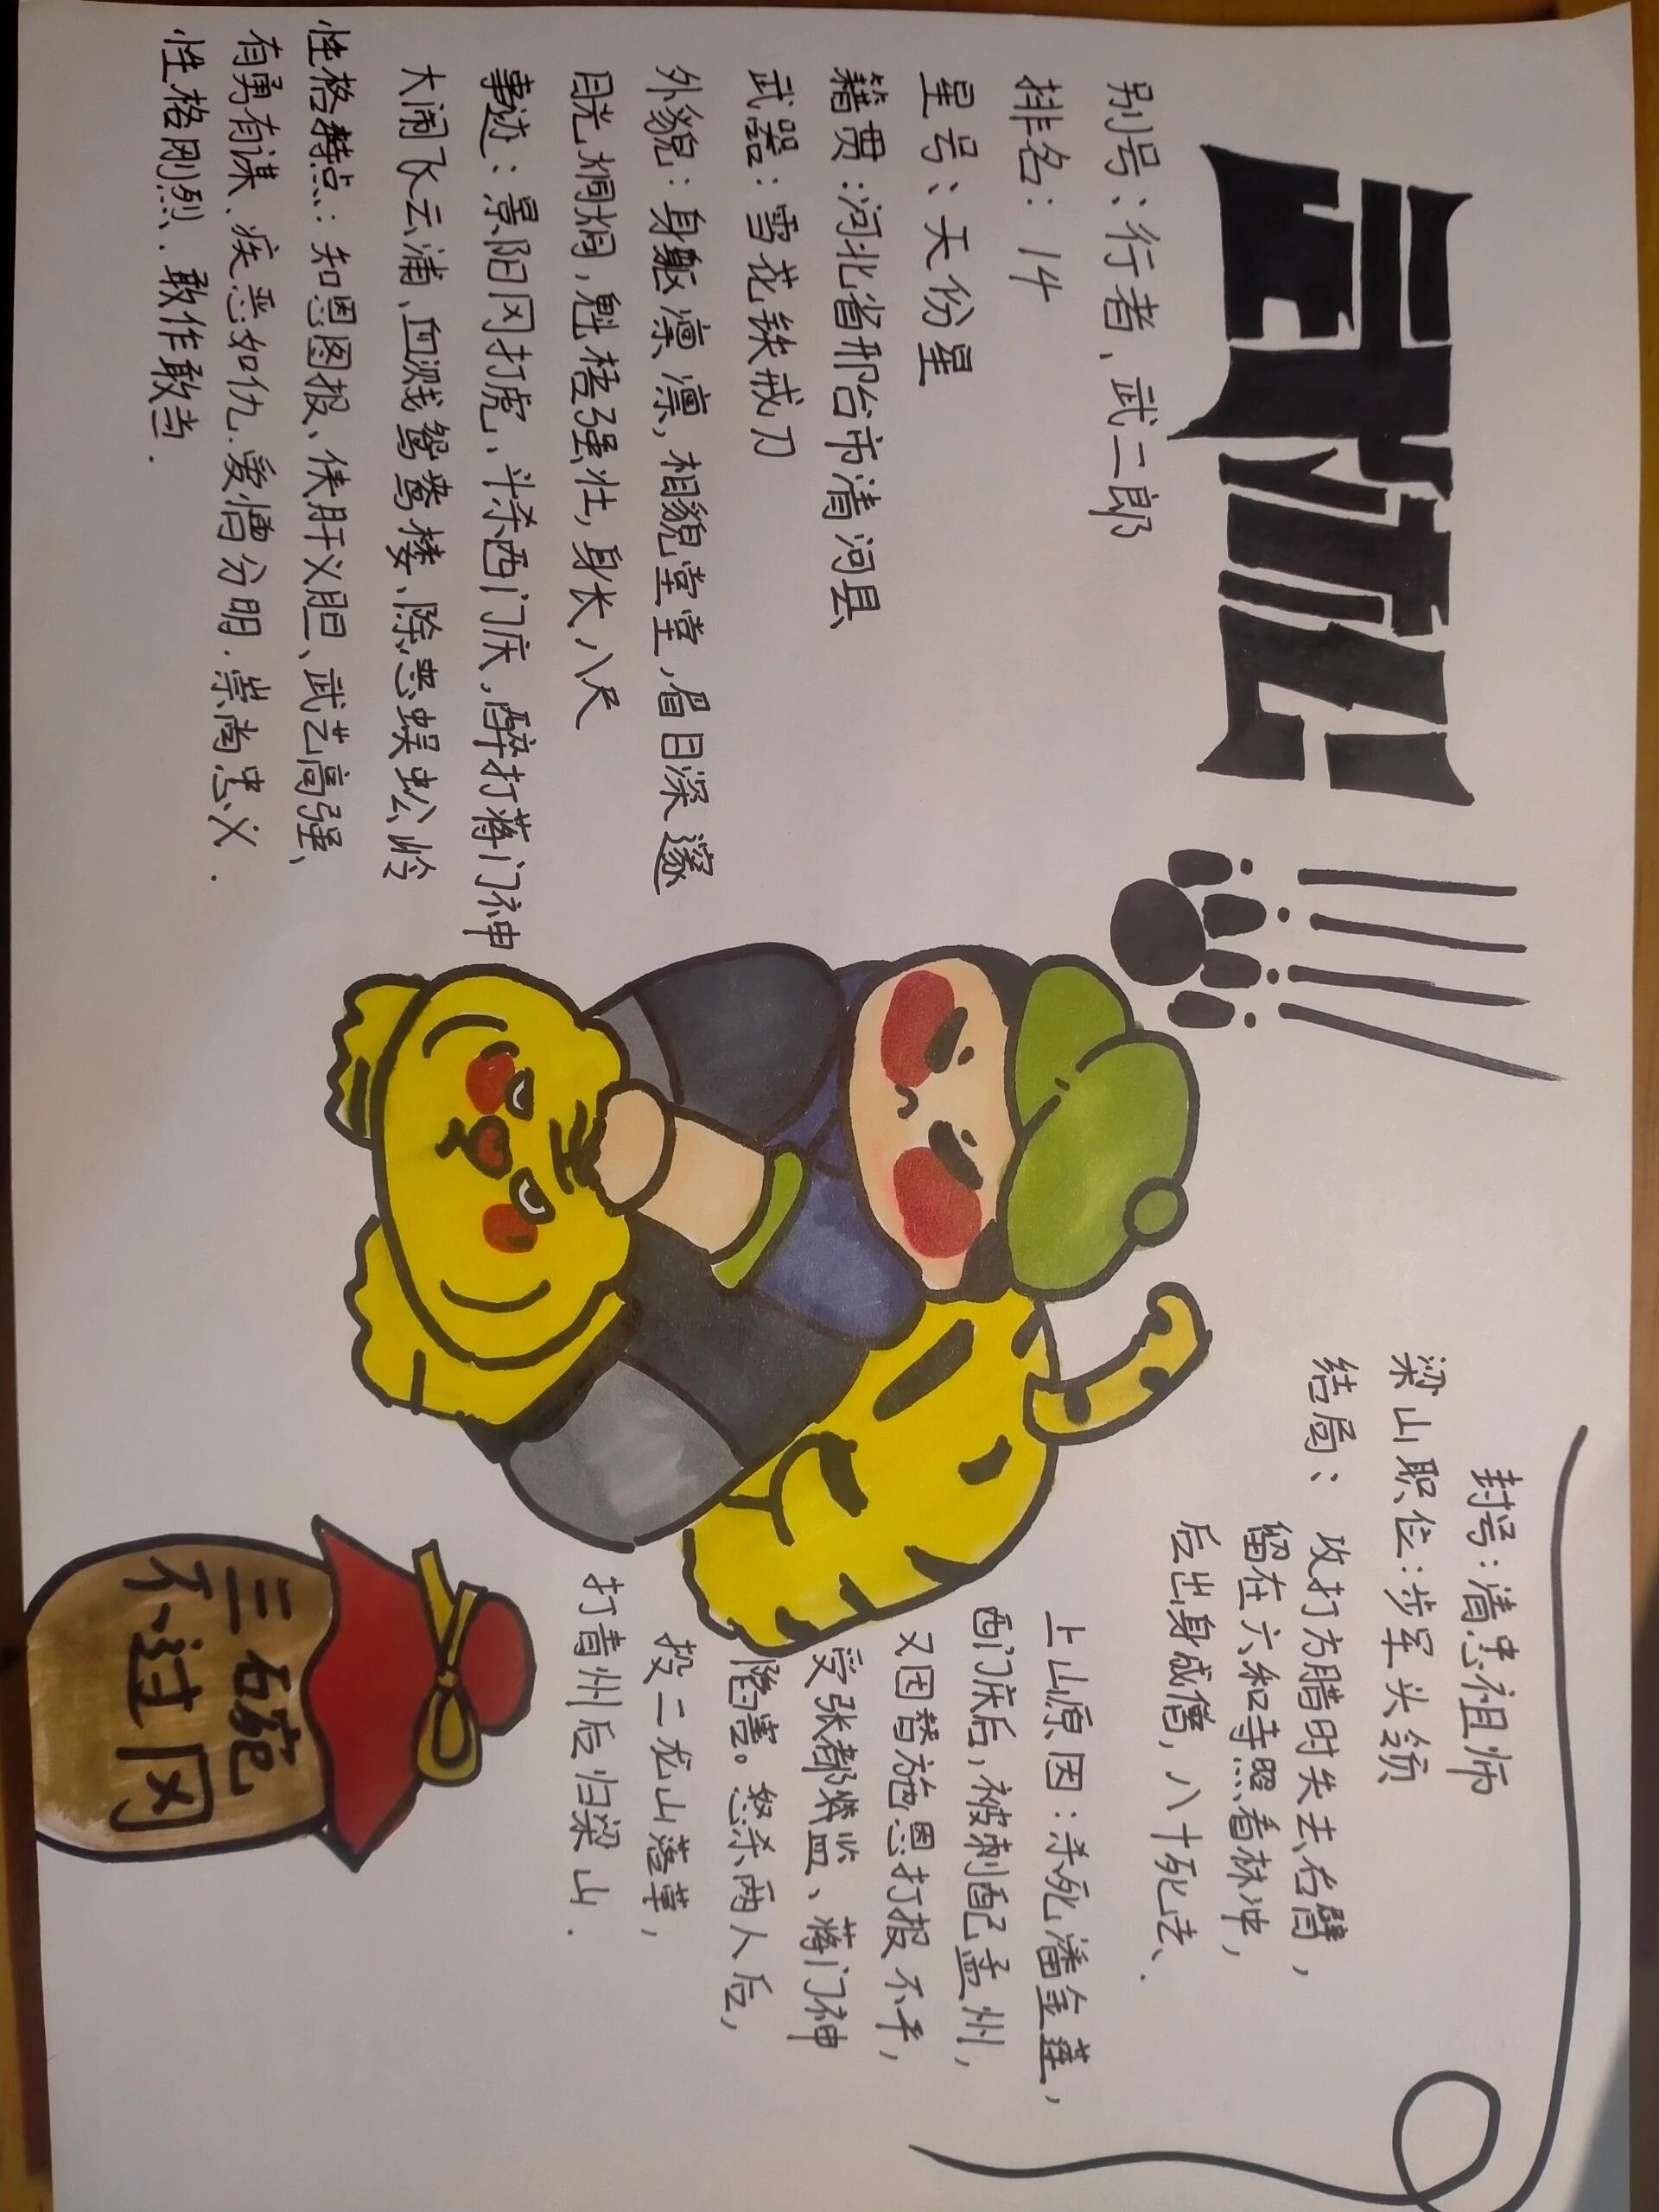 武松
别号:行者、武二郎
排名:14
星号:天份星
籍贯:河北省邢台市清河县
武器:雪花镔戒刀
外貌:身躯凛凛,相貌堂堂,眉目深邃
目光炯炯,魁梧强壮,身长八尺
事迹:景阳冈打虎、斗杀西门庆,醉打蒋门神
大闹飞云浦、血溅鸳鸯楼、除恶蜈蚣岭
性格特点:知恩图报、侠肝义胆、武艺高强、
有勇有谋、疾恶如仇.爱憎分明.崇尚忠义.
性格刚烈.敢作敢当.
封号:清忠祖师
梁山职位:步军头领
结局:攻打方腊时失去右臂,
留在六和寺照看林冲,
后出身成僧,八十死去、.
上山原因:杀死潘金莲,
西门庆后,被刺配孟州,
又因替施恩打报不平,
受张都监、蒋门神
陷害。怒杀两人后,
投二龙山落草,
打青州后归梁山.
三碗
不过冈